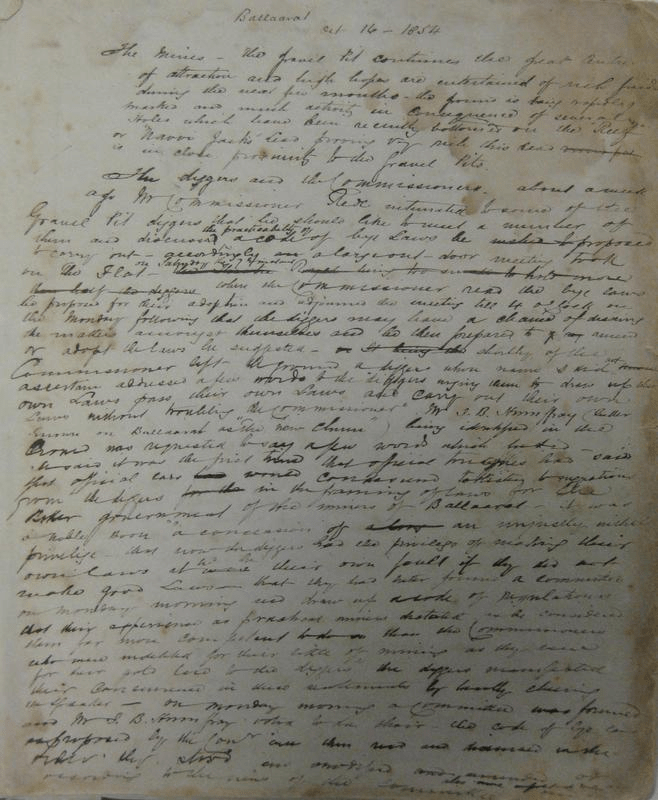 Ballaarat
oct 16 - 1854
The Mines - the gravel Pit continues the great centre
of attraction and high hopes are entertained of rich finds
during the next few months - the ground is being rapidly
marked and much activity in consequence of several
Holes which have been recently bottomed on the Reef
or Navvi Jack's Lead proving very rich this lead
is in close proximity to the Gravel Pits
The diggers and the Commissioners. about a week
ago Mr Commissioner Rede intimated to some of the
Gravel Pit diggers that he should like to meet a number of
the practicability of
them and discuss a code of bye Laws he proposed
to carry out accordingly a large out-door meeting took
on Saturday
on the Flat being too
when the Commissioner read the bye laws
he proposed for their adoption and adjourned the meeting till 4 o'clock on
the Monday following that the diggers may have a chance of discussing
the matter amongst themselves and be then prepared to amend
or adopt the laws he suggested - shortly after the
Commissioner left the ground a digger whose name I did not
ascertain addressed a few words to the diggers urging them to draw up their
own Laws pass their own Laws and carry out their own
Laws without troubling "the Commissioner" Mr J. B. Humffray (better
known on Ballaarat as "the new chum") being identified in the
Crowd was requested to say a few words which he did -
he said it was the first time that official tongues had said
that official ears would condescend to listen to suggestions
from the diggers in the framing of laws for the
government of the miners of Ballaarat - it was
a noble Boon "a concession of an unjustly withheld
privilege - that now the diggers had the privilege of making their
own laws it was their own fault if they did not
make good Laws - that they had better form a committee
on monday morning and draw up a code of regulations
that their experience as practical miners dictated - he considered
them far more competent to do so than the Commissioners
who were indebted for their state of mining as they were
for their gold lace to the diggers" the diggers manifested
their concurrence in these sentiments by loudly cheering
the speaker - on monday morning a Committee was formed
and Mr J. B. Humffray voted to the chair - the code of bye laws
proposed by the Com^r were then read and discussed in the
order they stood and modified and amended or
according to the views of the Committee